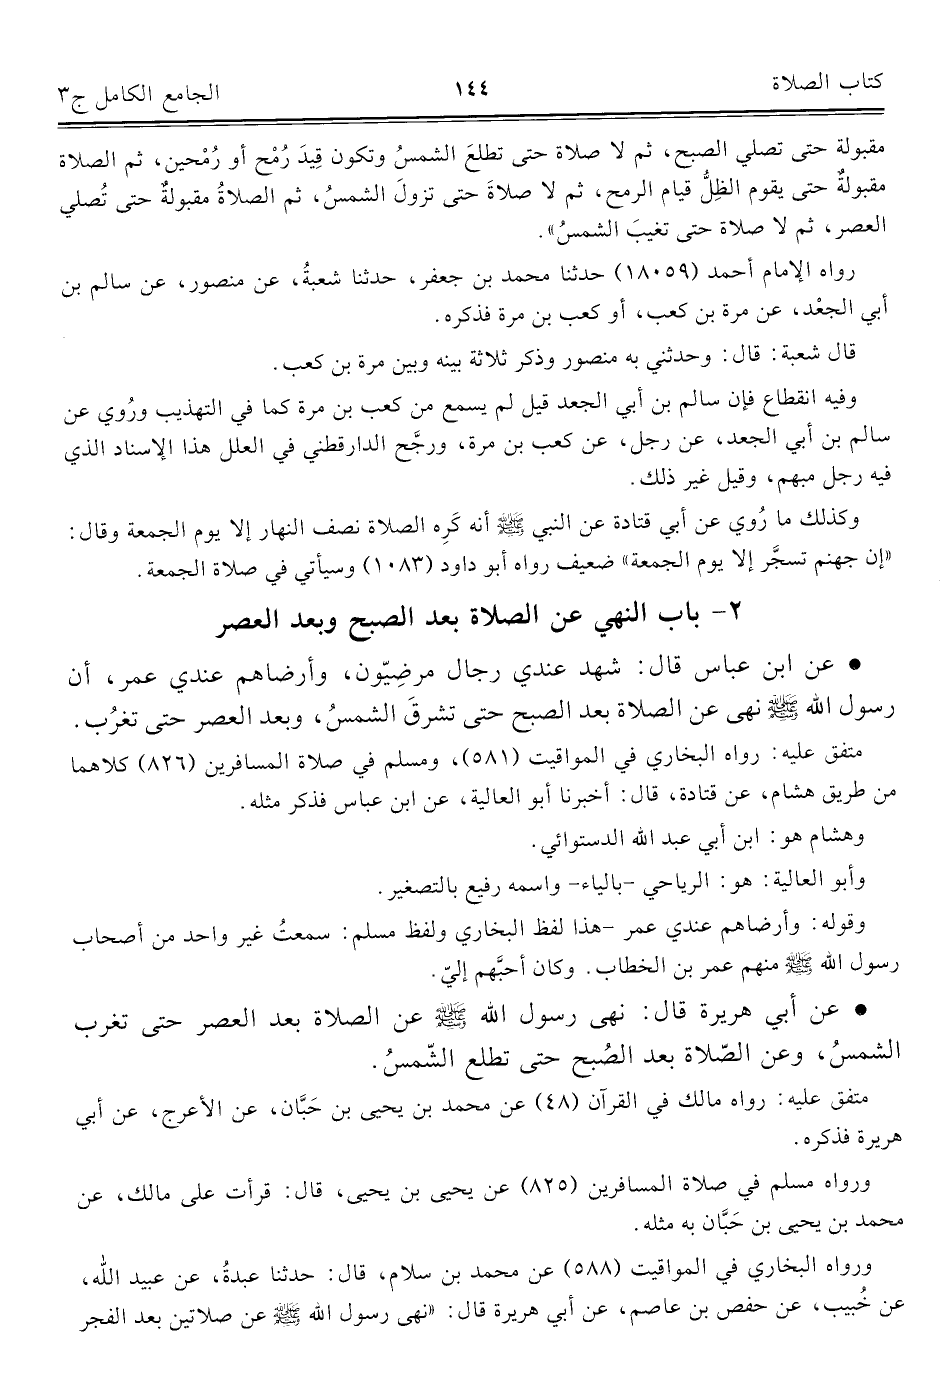 كتاب الصلاة ١٤٤ الجامع الكامل ج٣
مقبولة حتى تصلي الصبح، ثم لا صلاة حتى تطلعَ الشمسُ وتكون قِيدَ رُمْح أو رُمْحين، ثم الصلاة
مقبولةٌ حتى يقوم الظِلُّ قيام الرمح، ثم لا صلاةَ حتى تزولَ الشمسُ، ثم الصلاةُ مقبولةٌ حتى تُصلي
العصر، ثم لا صلاة حتى تغيبَ الشمسُ».
رواه الإمام أحمد (١٨٠٥٩) حدثنا محمد بن جعفر، حدثنا شعبةُ، عن منصور، عن سالم بن
أبي الجعْد، عن مرة بن كعب، أو كعب بن مرة فذكره.
قال شعبة: قال: وحدثني به منصور وذكر ثلاثة بينه وبين مرة بن كعب.
وفيه انقطاع فإن سالم بن أبي الجعد قيل لم يسمع من كعب بن مرة كما في التهذيب ورُوي عن
سالم بن أبي الجعد، عن رجل، عن كعب بن مرة، ورجَّح الدارقطني في العلل هذا الإسناد الذي
فيه رجل مبهم، وقيل غير ذلك.
وكذلك ما رُوي عن أبي قتادة عن النبي ﷺ أنه كَرِه الصلاة نصف النهار إلا يوم الجمعة وقال:
«إن جهنم تسجَّر إلا يوم الجمعة» ضعيف رواه أبو داود (١٠٨٣) وسيأتي في صلاة الجمعة.
٢- باب النهي عن الصلاة بعد الصبح وبعد العصر
• عن ابن عباس قال: شهد عندي رجال مرضِيّون، وأرضاهم عندي عمر، أن
رسول الله ﷺ نهى عن الصلاة بعد الصبح حتى تشرقَ الشمسُ، وبعد العصر حتى تغرُب.
متفق عليه: رواه البخاري في المواقيت (٥٨١)، ومسلم في صلاة المسافرين (٨٢٦) كلاهما
من طريق هشام، عن قتادة، قال: أخبرنا أبو العالية، عن ابن عباس فذكر مثله.
وهشام هو: ابن أبي عبد الله الدستوائي.
وأبو العالية: هو: الرياحي -بالياء- واسمه رفيع بالتصغير.
وقوله: وأرضاهم عندي عمر -هذا لفظ البخاري ولفظ مسلم: سمعتُ غير واحد من أصحاب
رسول الله ﷺ منهم عمر بن الخطاب. وكان أحبَّهم إليّ.
• عن أبي هريرة قال: نهى رسول الله ﷺ عن الصلاة بعد العصر حتى تغرب
الشمسُ، وعن الصّلاة بعد الصُبح حتى تطلع الشّمسُ.
متفق عليه: رواه مالك في القرآن (٤٨) عن محمد بن يحيى بن حَبَّان، عن الأعرج، عن أبي
هريرة فذكره.
ورواه مسلم في صلاة المسافرين (٨٢٥) عن يحيى بن يحيى، قال: قرأت على مالك، عن
محمد بن يحيى بن حَبَّان به مثله.
ورواه البخاري في المواقيت (٥٨٨) عن محمد بن سلام، قال: حدثنا عبدةُ، عن عبيد الله،
عن خُبيب، عن حفص بن عاصم، عن أبي هريرة قال: «نهى رسول الله ﷺ عن صلاتين بعد الفجر